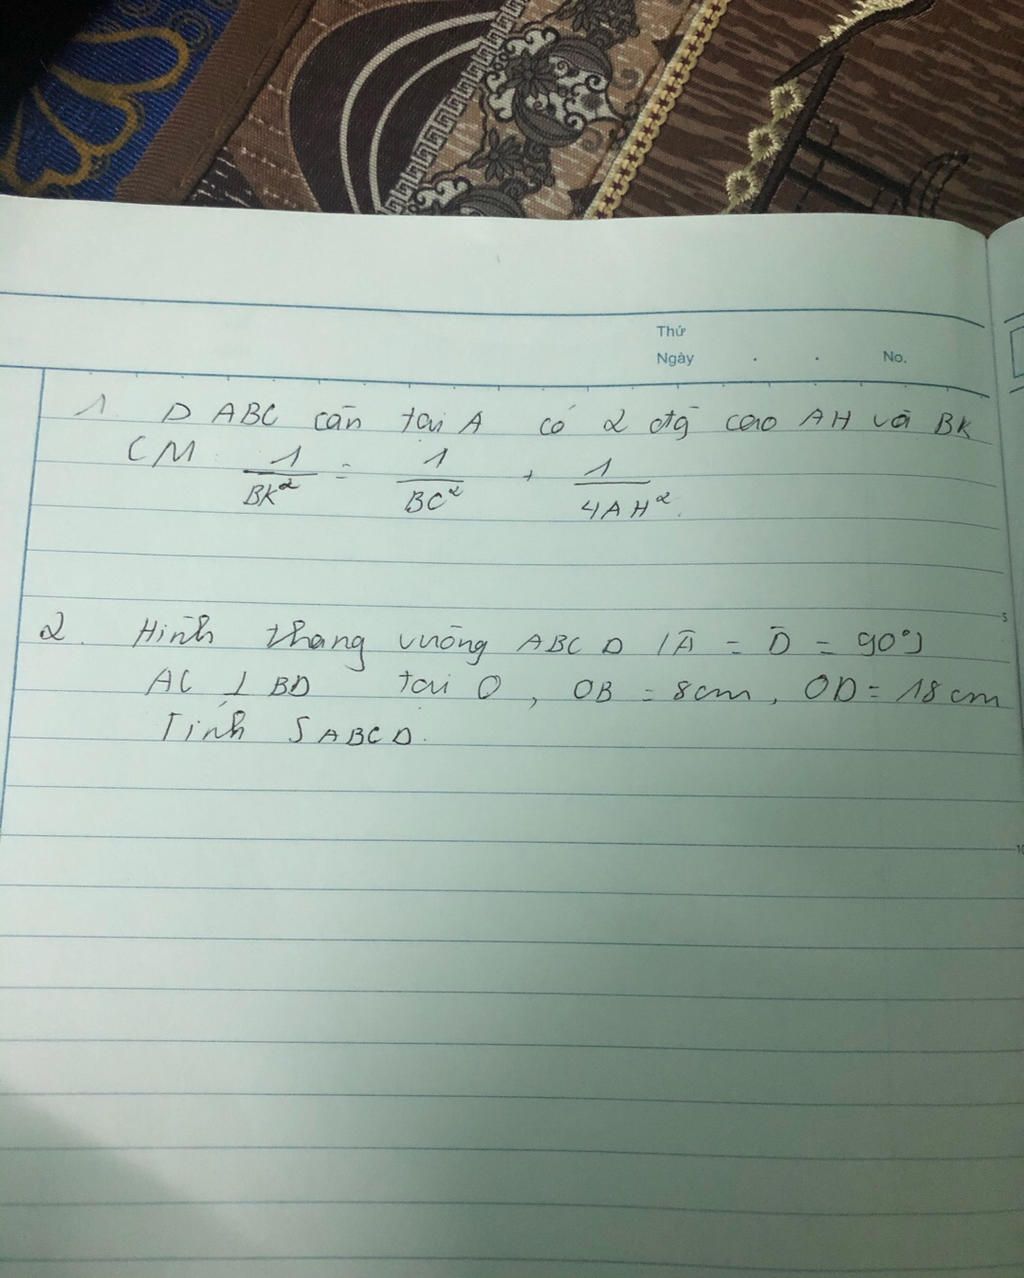 Thứ
Ngày . . No.
1. Δ ABC cân tại A có 2 đg̃ cao AH và BK
CM: 1/BK² = 1/BC² + 1/4AH².
5
2. Hình thang vuông ABCD (Â = D̂ = 90°)
AC ⊥ BD tại O, OB = 8cm, OD = 18cm
Tính SABCD.
10